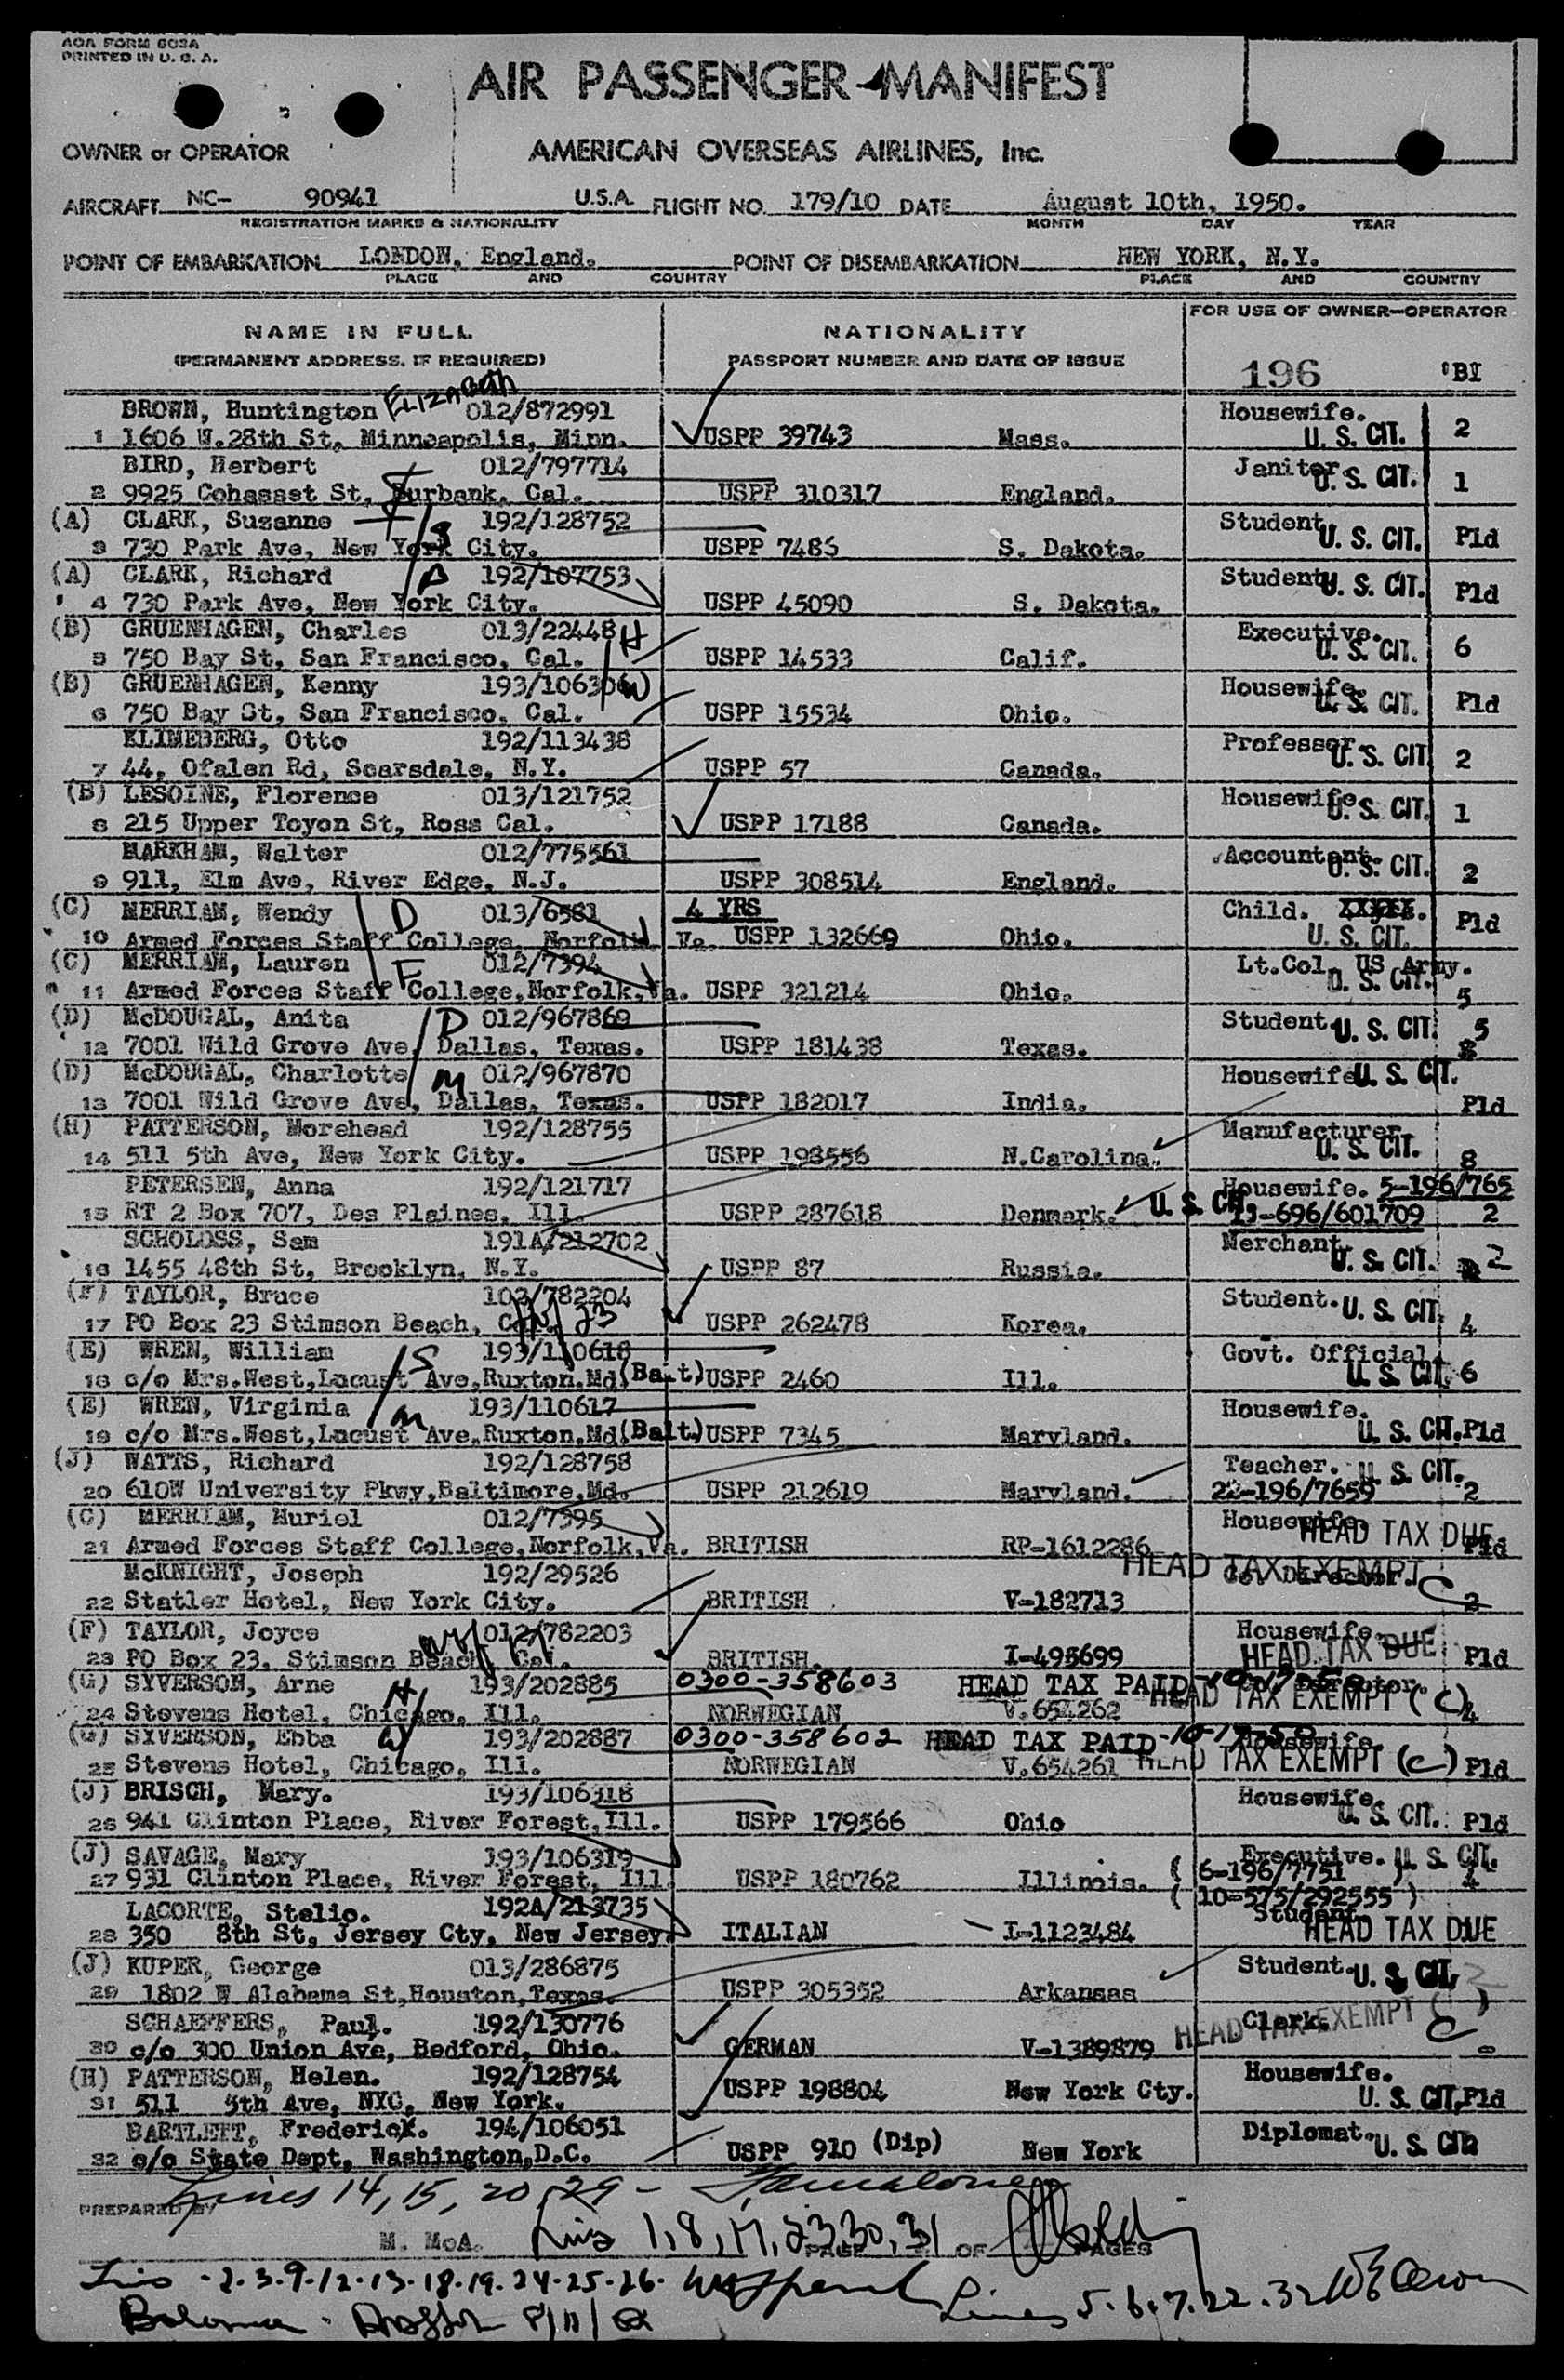 AOA FORM 603A
PRINTED IN U. S. A.
AIR PASSENGER MANIFEST
OWNER or OPERATOR AMERICAN OVERSEAS AIRLINES, Inc.
AIRCRAFT NC- 90941 U.S.A. FLIGHT NO. 179/10 DATE August 10th, 1950.
REGISTRATION MARKS & NATIONALITY MONTH DAY YEAR
POINT OF EMBARKATION LONDON, England. POINT OF DISEMBARKATION NEW YORK, N.Y.
PLACE AND COUNTRY PLACE AND COUNTRY
NAME IN FULL NATIONALITY FOR USE OF OWNER—OPERATOR
(PERMANENT ADDRESS, IF REQUIRED) PASSPORT NUMBER AND DATE OF ISSUE 196 'BI
BROWN, Huntington ELIZABETH 012/872991 Housewife.
1 1606 W.28th St, Minneapolis, Minn. USPP 39743 Mass. U. S. CIT. 2
BIRD, Herbert 012/797714 Janitor
2 9925 Cohasset St, Burbank, Cal. USPP 310317 England. U. S. CIT. 1
(A) CLARK, Suzanne 192/128752 Student.
3 730 Park Ave, New York City. S USPP 7486 S. Dakota. U. S. CIT. Pld
(A) CLARK, Richard B 192/107753 Student U. S. CIT.
4 730 Park Ave, New York City. USPP 45090 S. Dakota. Pld
(B) GRUENHAGEN, Charles 013/22448 H Executive.
5 750 Bay St, San Francisco, Cal. USPP 14533 Calif. U. S. CIT. 6
(B) GRUENHAGEN, Kenny 193/106306 W Housewife.
6 750 Bay St, San Francisco, Cal. USPP 15534 Ohio. U. S. CIT. Pld
KLINEBERG, Otto 192/113438 Professor.
7 44, Ofalen Rd, Scarsdale, N.Y. USPP 57 Canada. U. S. CIT 2
(B) LESOINE, Florence 013/121752 Housewife
8 215 Upper Toyon St, Ross Cal. USPP 17188 Canada. U. S. CIT. 1
MARKHAM, Walter 012/775561 Accountant.
9 911, Elm Ave, River Edge, N.J. USPP 308514 England. U. S. CIT. 2
(C) MERRIAM, Wendy D 013/6581 4 YRS Child. Pld
10 Armed Forces Staff College, Norfolk, Va. USPP 132669 Ohio. U. S. CIT.
(C) MERRIAM, Lauren F 012/7394 Lt.Col. US Army.
11 Armed Forces Staff College,Norfolk,Va. USPP 321214 Ohio. U. S. CIT. 5
(D) McDOUGAL, Anita D 012/967869 Student. U. S. CIT. 5
12 7001 Wild Grove Ave, Dallas, Texas. USPP 181438 Texas.
(D) McDOUGAL, Charlotte M 012/967870 Housewife U. S. CIT.
13 7001 Wild Grove Ave, Dallas, Texas. USPP 182017 India. Pld
(H) PATTERSON, Morehead 192/128755 Manufacturer
14 511 5th Ave, New York City. USPP 198556 N.Carolina. U. S. CIT. 8
PETERSEN, Anna 192/121717 Housewife. 5-196/765
15 RT 2 Box 707, Des Plaines, Ill. USPP 287618 Denmark. U. S. CIT. 13-696/601709 2
SCHOLOSS, Sam 191A/212702 Merchant
16 1455 48th St, Brooklyn, N.Y. USPP 87 Russia. U. S. CIT. 2
(F) TAYLOR, Bruce 102/782204 Student. U. S. CIT.
17 PO Box 23 Stimson Beach, Cal. USPP 262478 Korea. 4
(E) WREN, William S 193/110618 Govt. Official.
18 c/o Mrs.West,Locust Ave,Ruxton,Md(Balt) USPP 2460 Ill. U. S. CIT. 6
(E) WREN, Virginia M 193/110617 Housewife.
19 c/o Mrs.West,Locust Ave,Ruxton,Md(Balt.) USPP 7345 Maryland. U. S. CIT. Pld
(J) WATTS, Richard 192/128758 Teacher. U. S. CIT.
20 610W University Pkwy,Baltimore,Md. USPP 212619 Maryland. 22-196/7659 2
(C) MERRIAM, Muriel 012/7395 Housewife. HEAD TAX DUE
21 Armed Forces Staff College,Norfolk,Va. BRITISH RP-1612286 Pld
McKNIGHT, Joseph 192/29526 HEAD TAX EXEMPT Co. Director. C
22 Statler Hotel, New York City. BRITISH V-182713 2
(F) TAYLOR, Joyce 012/782203 Housewife.
23 PO Box 23, Stimson Beach, Cal. BRITISH. I-495699 HEAD TAX DUE Pld
(G) SYVERSON, Arne H 193/202885 0300-358603 HEAD TAX PAID Co. Director.
24 Stevens Hotel, Chicago, Ill. NORWEGIAN V.654262 HEAD TAX EXEMPT (C) 4
(G) SYVERSON, Ebba W 193/202887 0300-358602 HEAD TAX PAID-10-19-50 Housewife.
25 Stevens Hotel, Chicago, Ill. NORWEGIAN V.654261 HEAD TAX EXEMPT (C) Pld
(J) BRISCH, Mary. 193/106318 Housewife.
26 941 Clinton Place, River Forest,Ill. USPP 179566 Ohio U. S. CIT. Pld
(J) SAVAGE, Mary 193/106319 Executive. U. S. CIT.
27 931 Clinton Place, River Forest, Ill. USPP 180762 Illinois. ( 6-196/7751 ) 4
( 10-575/292555 )
LACORTE, Stelio. 192A/213735 Student
28 350 8th St, Jersey Cty, New Jersey. ITALIAN I-1123484 HEAD TAX DUE
(J) KUPER, George 013/286875 Student. U. S. CIT. 2
29 1802 W Alabama St,Houston,Texas. USPP 305352 Arkansas
SCHAEFFERS, Paul. 192/130776 HEAD TAX EXEMPT ( ) Clerk.
30 c/o 300 Union Ave, Bedford, Ohio. GERMAN V-1389879 C
(H) PATTERSON, Helen. 192/128754 Housewife.
31 511 5th Ave, NYC, New York. USPP 198804 New York Cty. U. S. CIT. Pld
BARTLETT, Frederick. 194/106051 Diplomat.
32 c/o State Dept, Washington,D.C. USPP 910 (Dip) New York U. S. CIT
Lines 14, 15, 20, 29 -
PREPARED BY
M. McA. Lines 1, 8, 17, 23, 30, 31 PAGE OF PAGES
Lines - 2-3-9-12-13-18-19-24-25-26- Lines 5-6-7-22-32